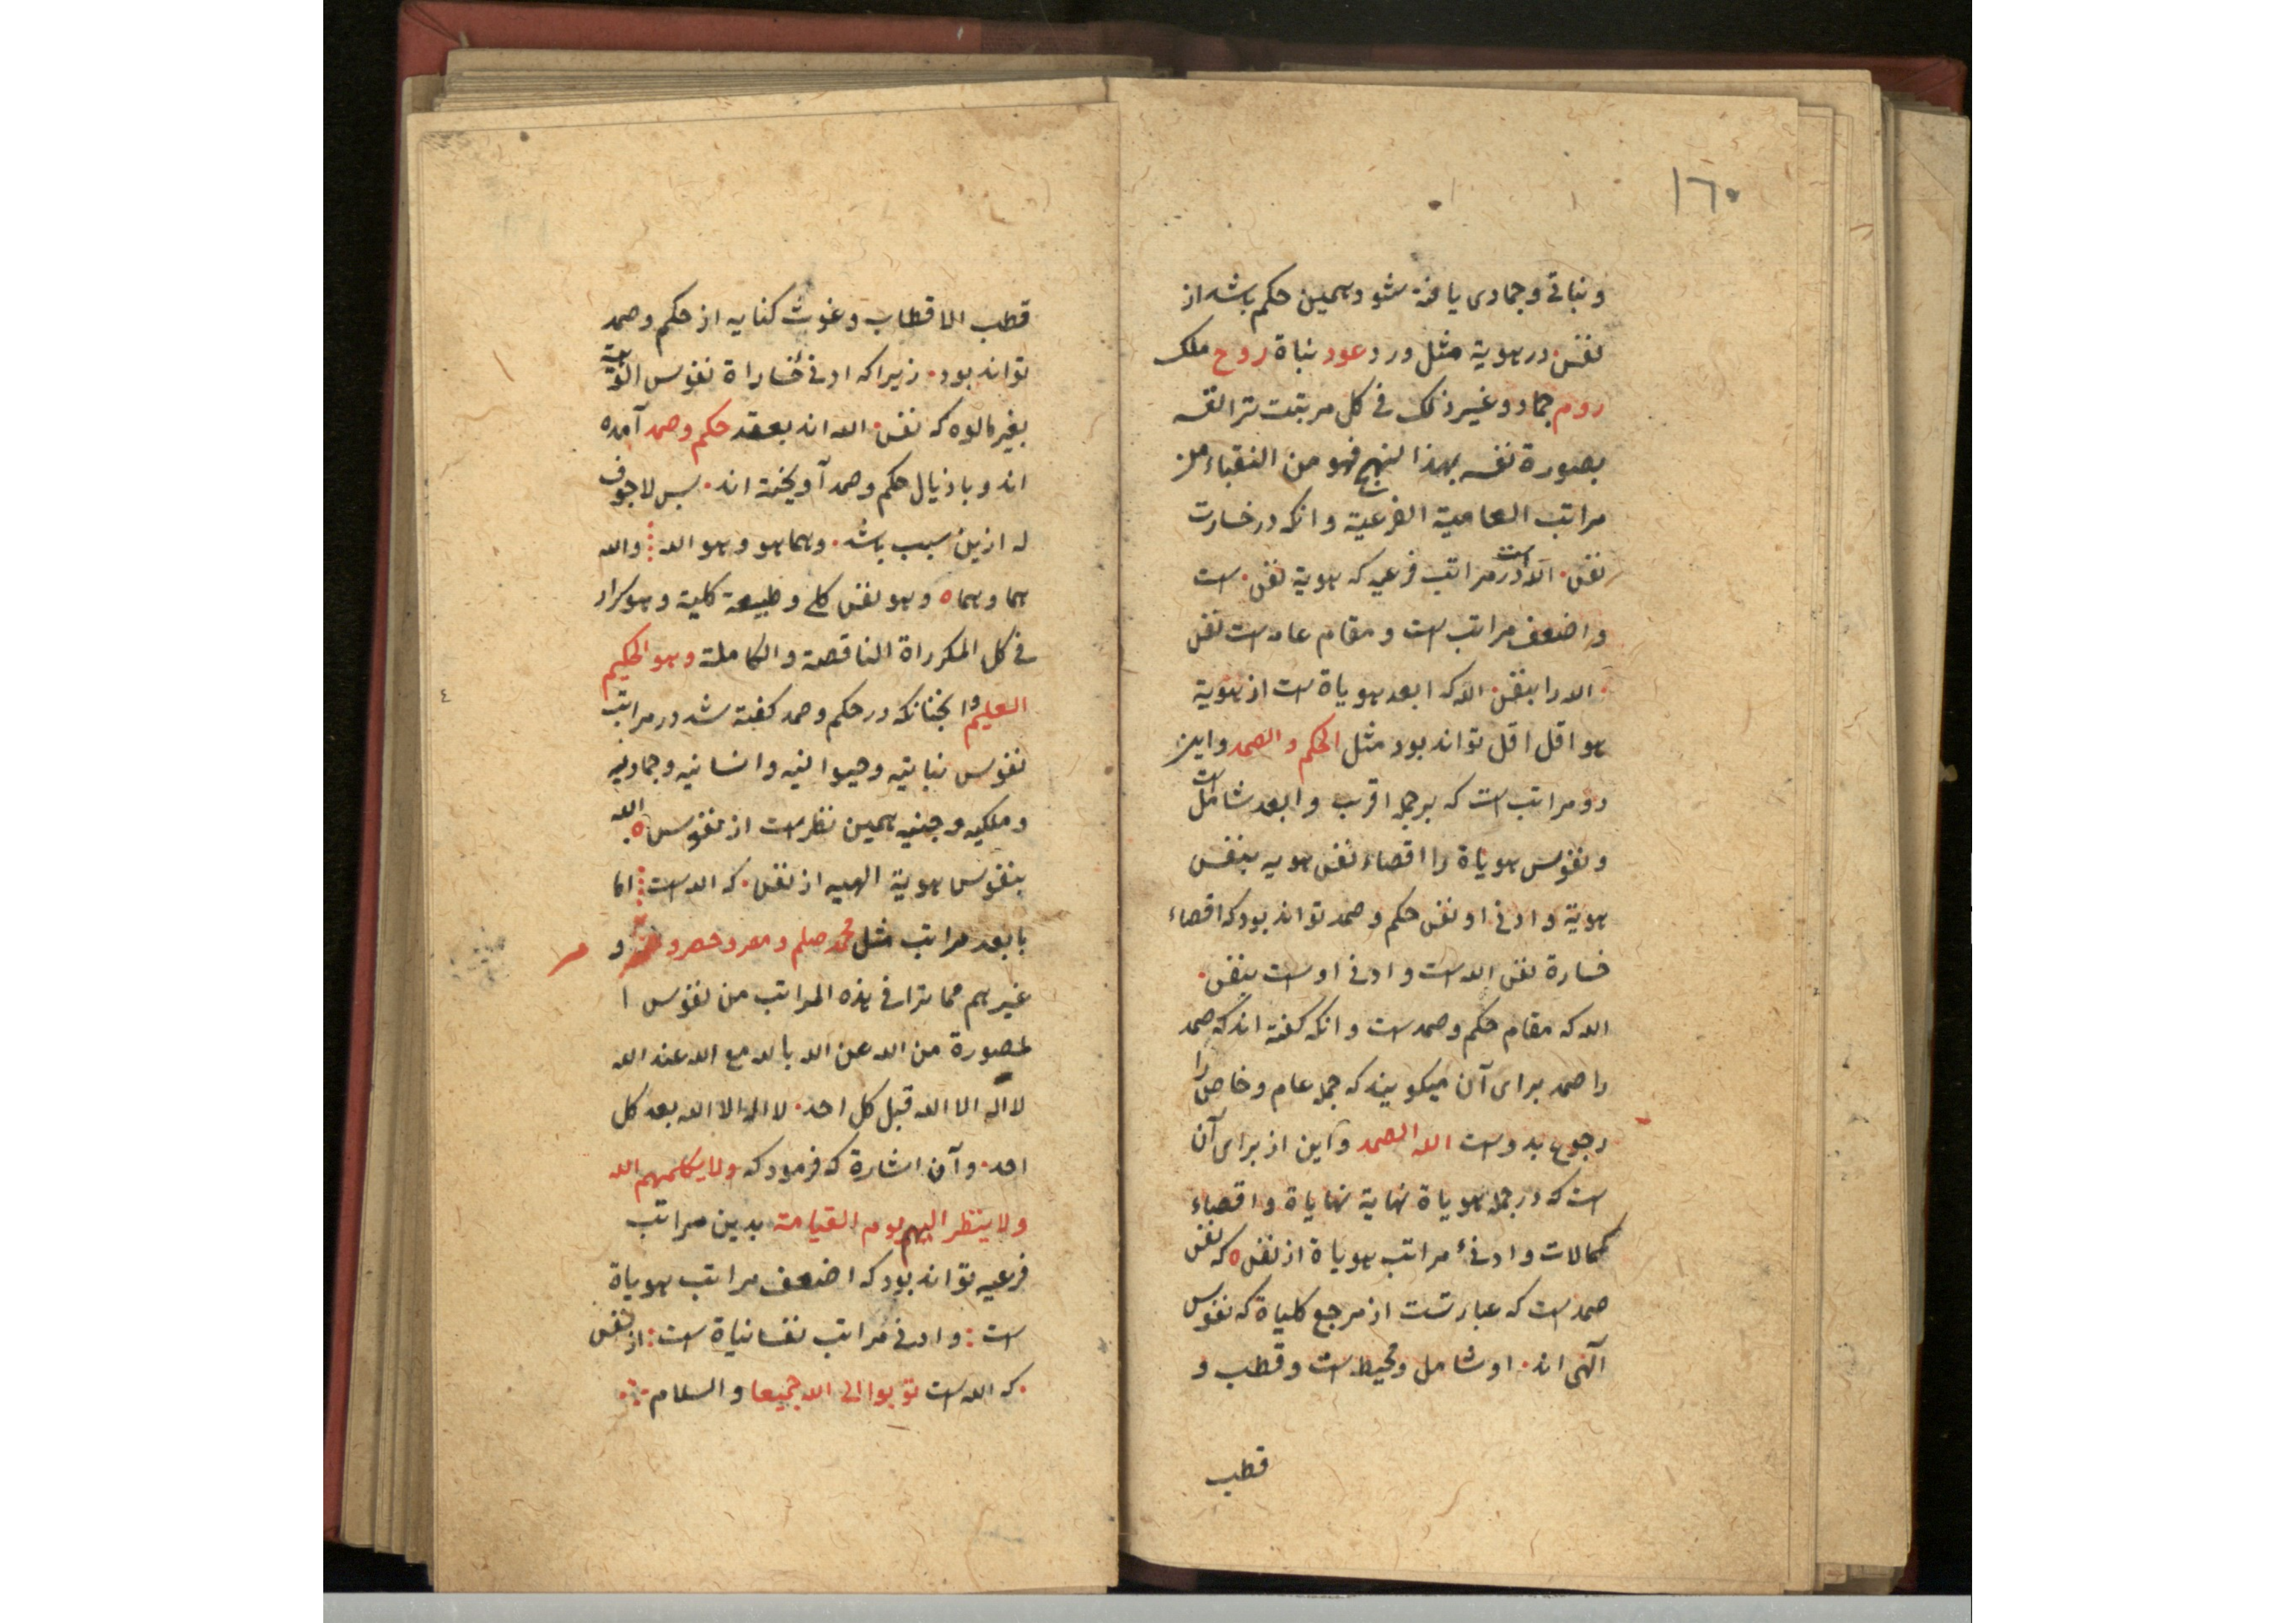 ١٦٠
و نباتی و جمادی یافته شود و همین حکم باشد از
نفس در هویة مثل ورد عود نباة روح ملک
روم جماد و غیر ذلک فی کل مرتبت ترا نفسه
بصورة نفسه بهذا النهج فهو من النقباء من
مراتب العامیة الفرعیة و انکه در خسارت
نفس. الله است در مراتب فرعیه که هویة نفس. است
و اضعف مراتب است و مقام عامه است نفس
. الله را بنفس. الله که ابعد هویاة است از هویة
هو اقل اقل تواند بود مثل الحکم و الصمد و این
دو مراتب است که بر جمله اقرب و ابعد شامل است
و نفوس هویاة را اقصاء نفس هویه بنفس
هویة و ادنی او نفس حکم و صمد تواند بود که اقصاء
خسارة نفس الله است و ادنی اوست بنفس.
الله که مقام حکم و صمد است و انکه گفته اند که صمد
را صمد برای آن میکویند که جمله عام و خاص را
رجوع بدوست الله الصمد و این از برای آن
است که در جمله هویاة نهایة نهایاة و اقصاء
کمالات و ادنیء مراتب هویاة از نفس ه که نفس
صمد است که عبارتست از مرجع کلیاة که نفوس
آلهی اند. او شامل و محیط است و قطب و
قطب
قطب الاقطاب و غوث کنایه از حکم و صمد
تواند بود. زیرا که ادنی خساراة نفوس
بغیر مالوه که نفس. الله اند بعقد حکم و صمد آمده
اند و باذیال حکم و صمد آویخته اند. پس لا جوف
له ازین سبب باشد. و هما هو و هو الله ⁝ و الله
هما و هما ه و هو نفس کلی و طبیعة کلیة و هو کرار
فی کل المکرراة الناقصة و الکاملة و هو الحکیم
العلیم و انجنانکه در حکم و صمد کفته شد در مراتب
نفوس نباتیه و حیوانیه و انسانیه و جمادیه
و ملکیه و جنیه همین نظر است از نفوس ه الله
بنفوس هویة الهیه از نفس. که الله است ⁝ اما
بابعد مراتب مثل محمد صلم و معر و حصر و و
غیرهم مما ترا فی هذه المراتب من نفوس ا
لمصورة من الله عن الله بالله مع الله عند الله
لا اله الا الله قبل کل احد. لا اله الا الله بعد کل
احد. و آن اشارة که فرمود که و لا یکلمهم الله
و لا ینظر الیهم یوم القیامة بدین مراتب
فرعیه تواند بود که اضعف مراتب هویاة
است : و ادنی مراتب نفسانیاة است : از نفس
. که الله است توبوا الی الله جمیعا و السلام